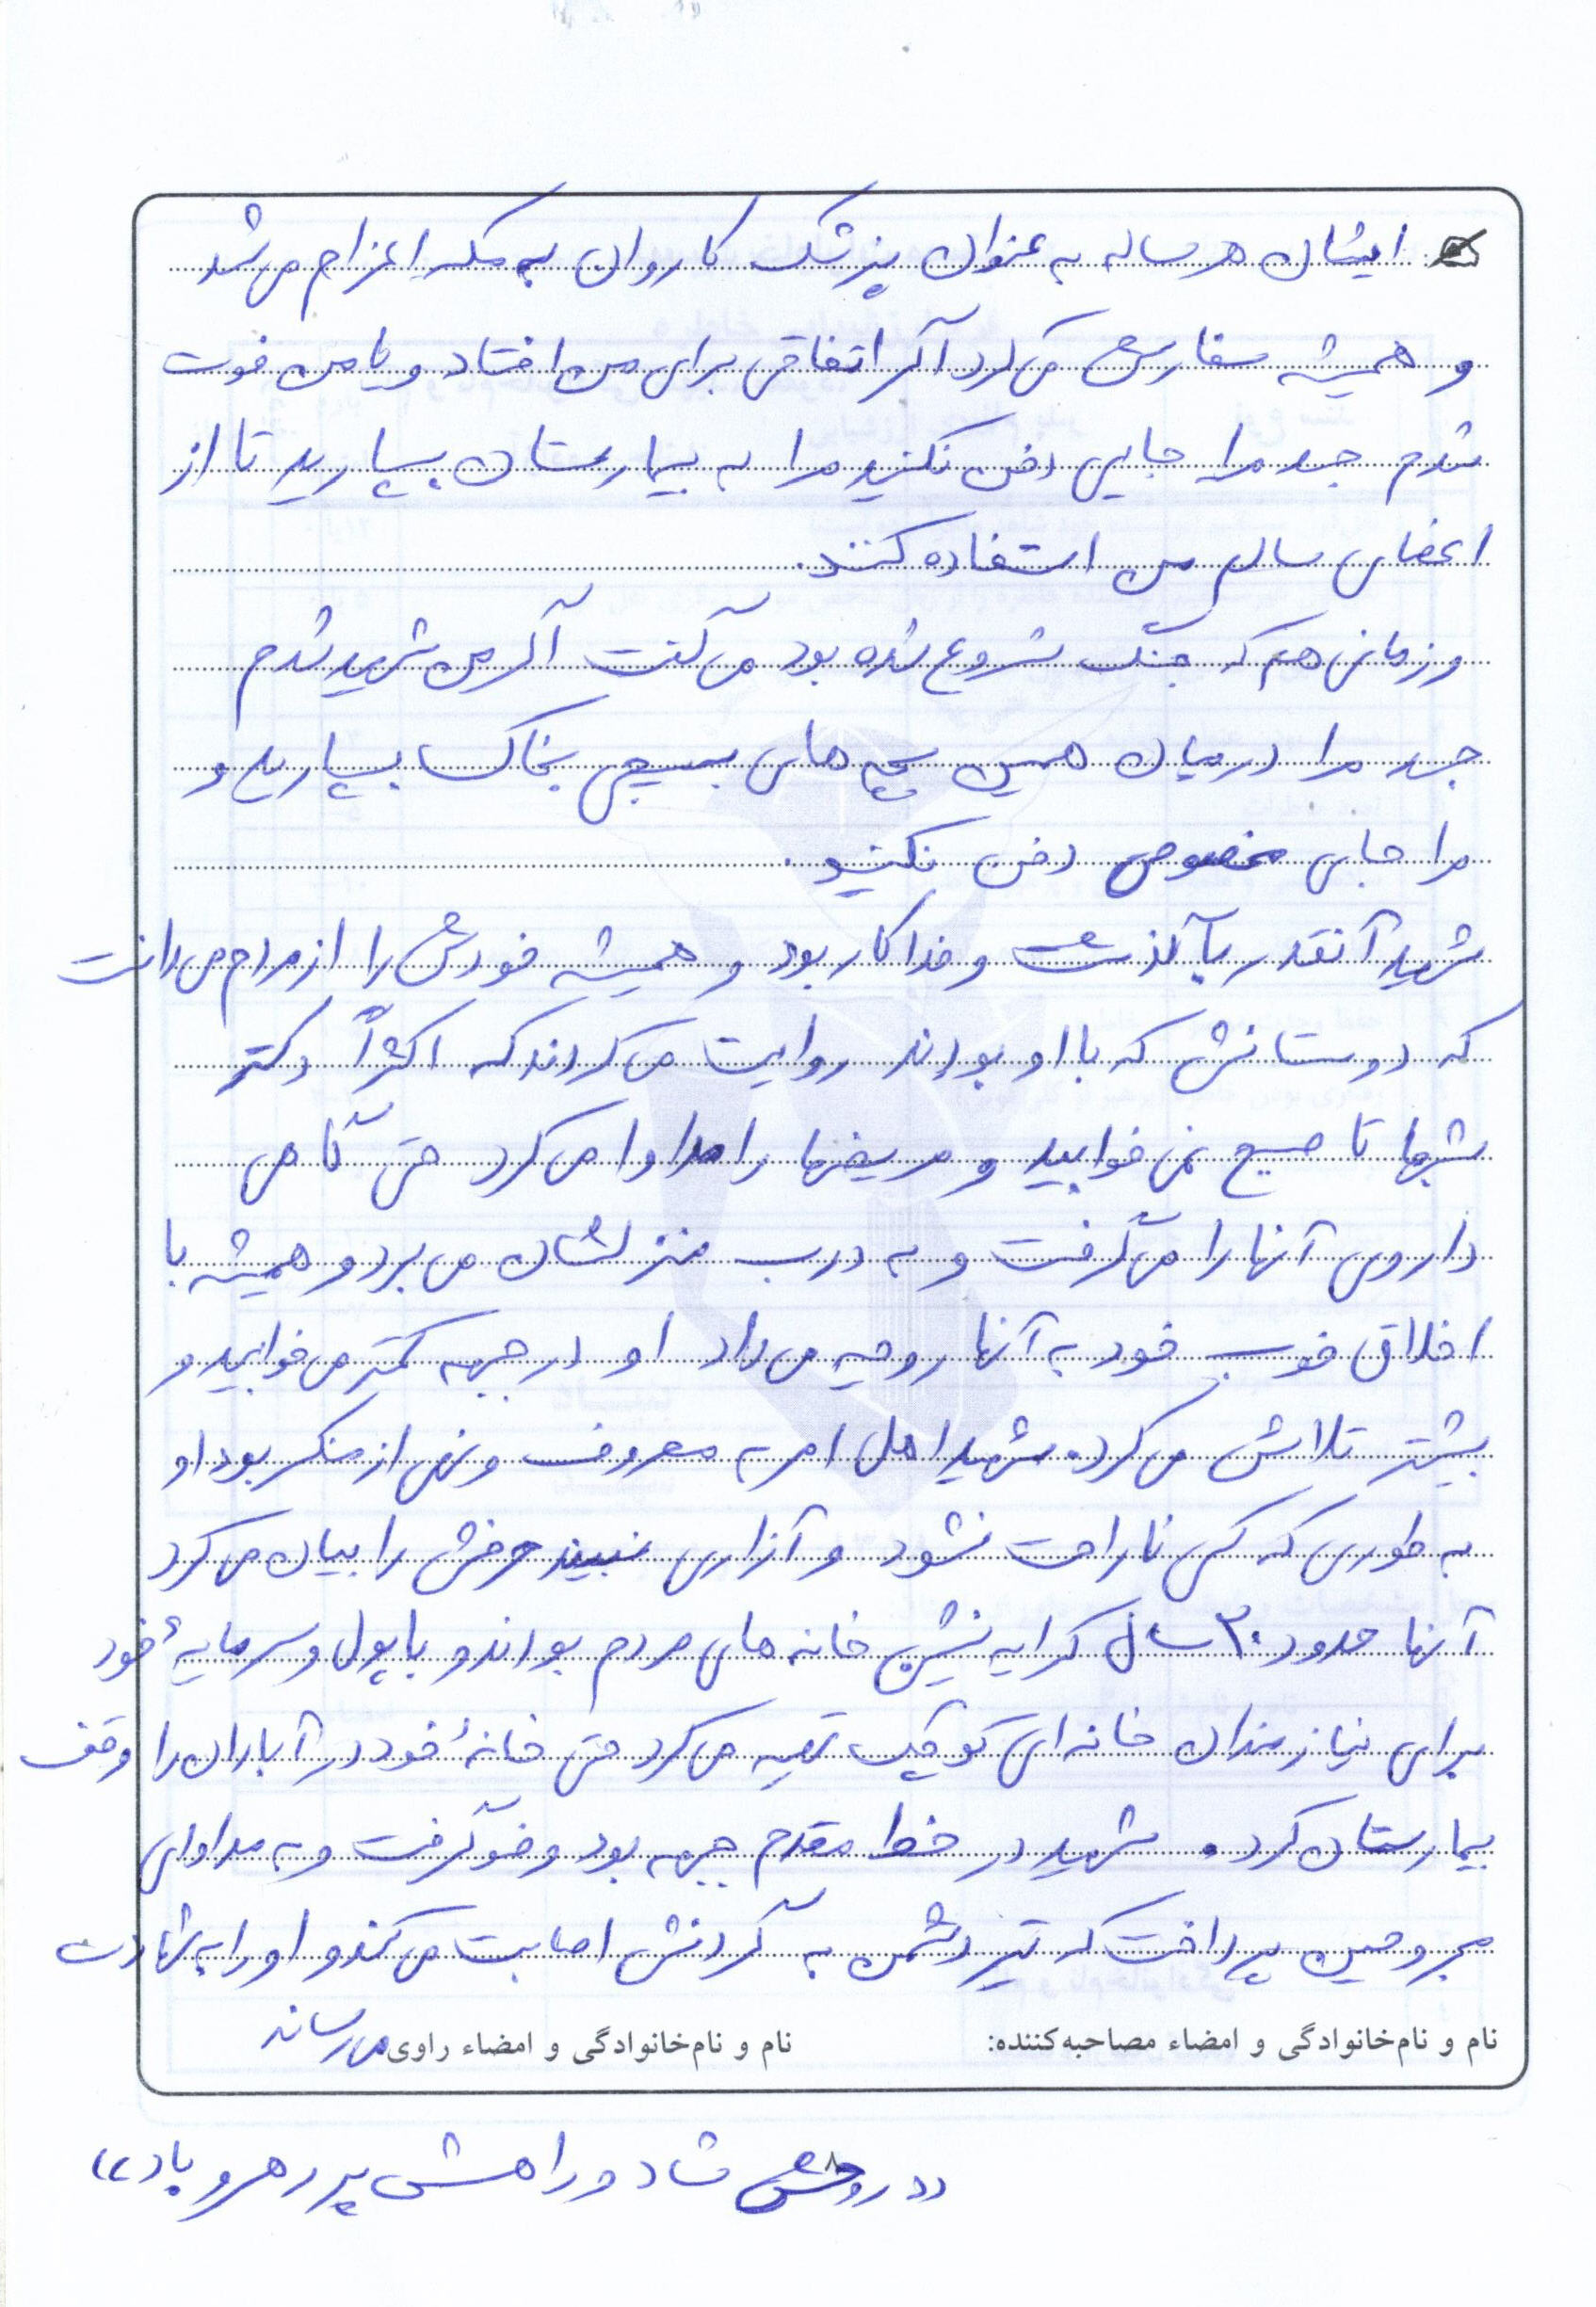 ایشان هر ساله به عنوان پزشک کاروان به مکه اعزام می‌شد
و همیشه سفارش می‌کرد اگر اتفاقی برای من افتاد و یا من فوت
شدم جسد مرا جایی دفن نکنید مرا به بیمارستان بسپارید تا از
اعضای سالم من استفاده کنند.
و زمانی هم که جنگ شروع شده بود می‌گفت اگر من شهید شدم
جسد مرا در میان همین بچه‌های بسیجی بخاک بسپارید و
مرا جای مخصوص دفن نکنید.
شهید آنقدر باگذشت و فداکار بود و همیشه خودش را از مردم می‌دانست
که دوستانش که با او بودند روایت می‌کردند که اکثراً دکتر
شبها تا صبح نمی‌خوابید و مریضها را مداوا می‌کرد حتی گاهی
داروی آنها را می‌گرفت و به درب منزلشان می‌برد و همیشه با
اخلاق خوب خود به آنها روحیه می‌داد او در جبهه کمتر می‌خوابید و
بیشتر تلاش می‌کرد. شهید اهل امر به معروف و نهی از منکر بود او
به طوری که کسی ناراحت نشود و آزاری نبیند حرفش را بیان می‌کرد
آنها حدود ۳۰ سال کرایه نشین خانه‌های مردم بودند و با پول و سرمایهٔ خود
برای نیازمندان خانه‌ای کوچک تهیه می‌کرد حتی خانهٔ خود در آبادان را وقف
بیمارستان کرد. شهید در خط مقدم جبهه بود وضو گرفت و به مداوای
مجروحین پرداخت که تیر دشمن به گردنش اصابت می‌کند و او را به شهادت
می‌رساند
نام و نام‌خانوادگی و امضاء مصاحبه‌کننده: نام و نام‌خانوادگی و امضاء راوی
((روحش شاد و راهش پر رهرو باد))